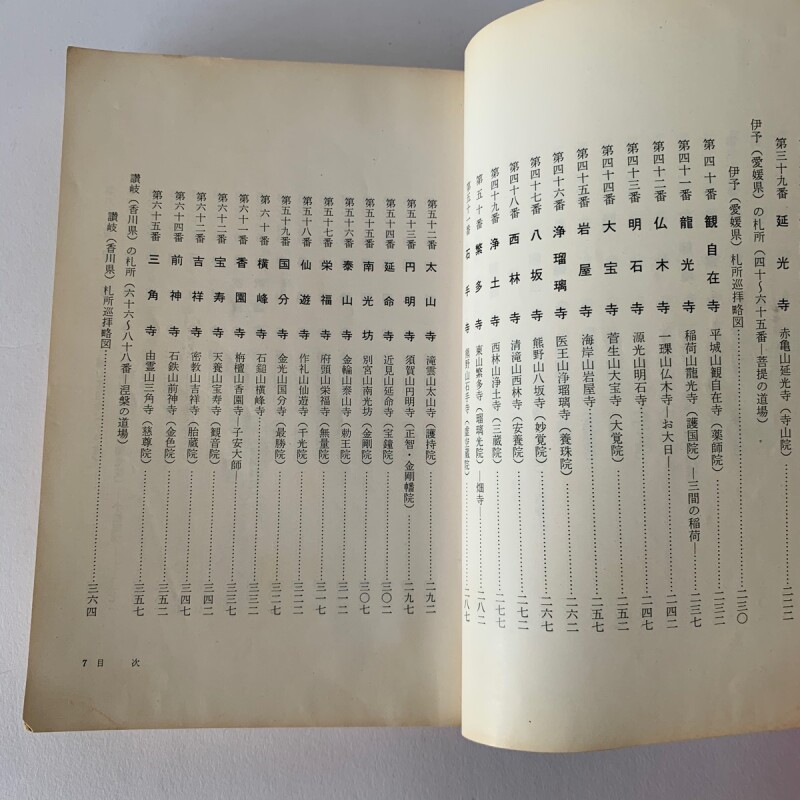 第三十九番 延光寺 赤亀山延光寺(寺山院)…………二二二
伊予(愛媛県)の札所(四十~六十五番―菩提の道場)
伊予(愛媛県)札所巡拝略図…………二三〇
第四十番 観自在寺 平城山観自在寺(薬師院)…………二三二
第四十一番 龍光寺 稲荷山龍光寺(護国院)―三間の稲荷―…………二三七
第四十二番 仏木寺 一𤦲山仏木寺―お大日―…………二四二
第四十三番 明石寺 源光山明石寺…………二四七
第四十四番 大宝寺 菅生山大宝寺(大覚院)…………二五二
第四十五番 岩屋寺 海岸山岩屋寺…………二五七
第四十六番 浄瑠璃寺 医王山浄瑠璃寺(養珠院)…………二六二
第四十七番 八坂寺 熊野山八坂寺(妙覚院)…………二六七
第四十八番 西林寺 清滝山西林寺(安養院)…………二七二
第四十九番 浄土寺 西林山浄土寺(三蔵院)…………二七七
第五十番 繁多寺 東山繁多寺(瑠璃光院)―畑寺…………二八二
第五十一番 石手寺 熊野山石手寺(虚空蔵院)…………二八七
第五十二番 太山寺 滝雲山太山寺(護持院)…………二九二
第五十三番 円明寺 須賀山円明寺(正智・金剛幡院)…………二九七
第五十四番 延命寺 近見山延命寺(宝鐘院)…………三〇二
第五十五番 南光坊 別宮山南光坊(金剛院)…………三〇七
第五十六番 泰山寺 金輪山泰山寺(勅王院)…………三一二
第五十七番 栄福寺 府頭山栄福寺(無量院)…………三一七
第五十八番 仙遊寺 作礼山仙遊寺(千光院)…………三二二
第五十九番 国分寺 金光山国分寺(最勝院)…………三二七
第六十番 横峰寺 石鎚山横峰寺…………三三二
第六十一番 香園寺 栴檀山香園寺―子安大師―…………三三七
第六十二番 宝寿寺 天養山宝寿寺(観音院)…………三四二
第六十三番 吉祥寺 密教山吉祥寺(胎蔵院)…………三四七
第六十四番 前神寺 石鉄山前神寺(金色院)…………三五二
第六十五番 三角寺 由霊山三角寺(慈尊院)…………三五七
讃岐(香川県)の札所(六十六~八十八番―涅槃の道場)
讃岐(香川県)札所巡拝略図…………三六四
7 目 次